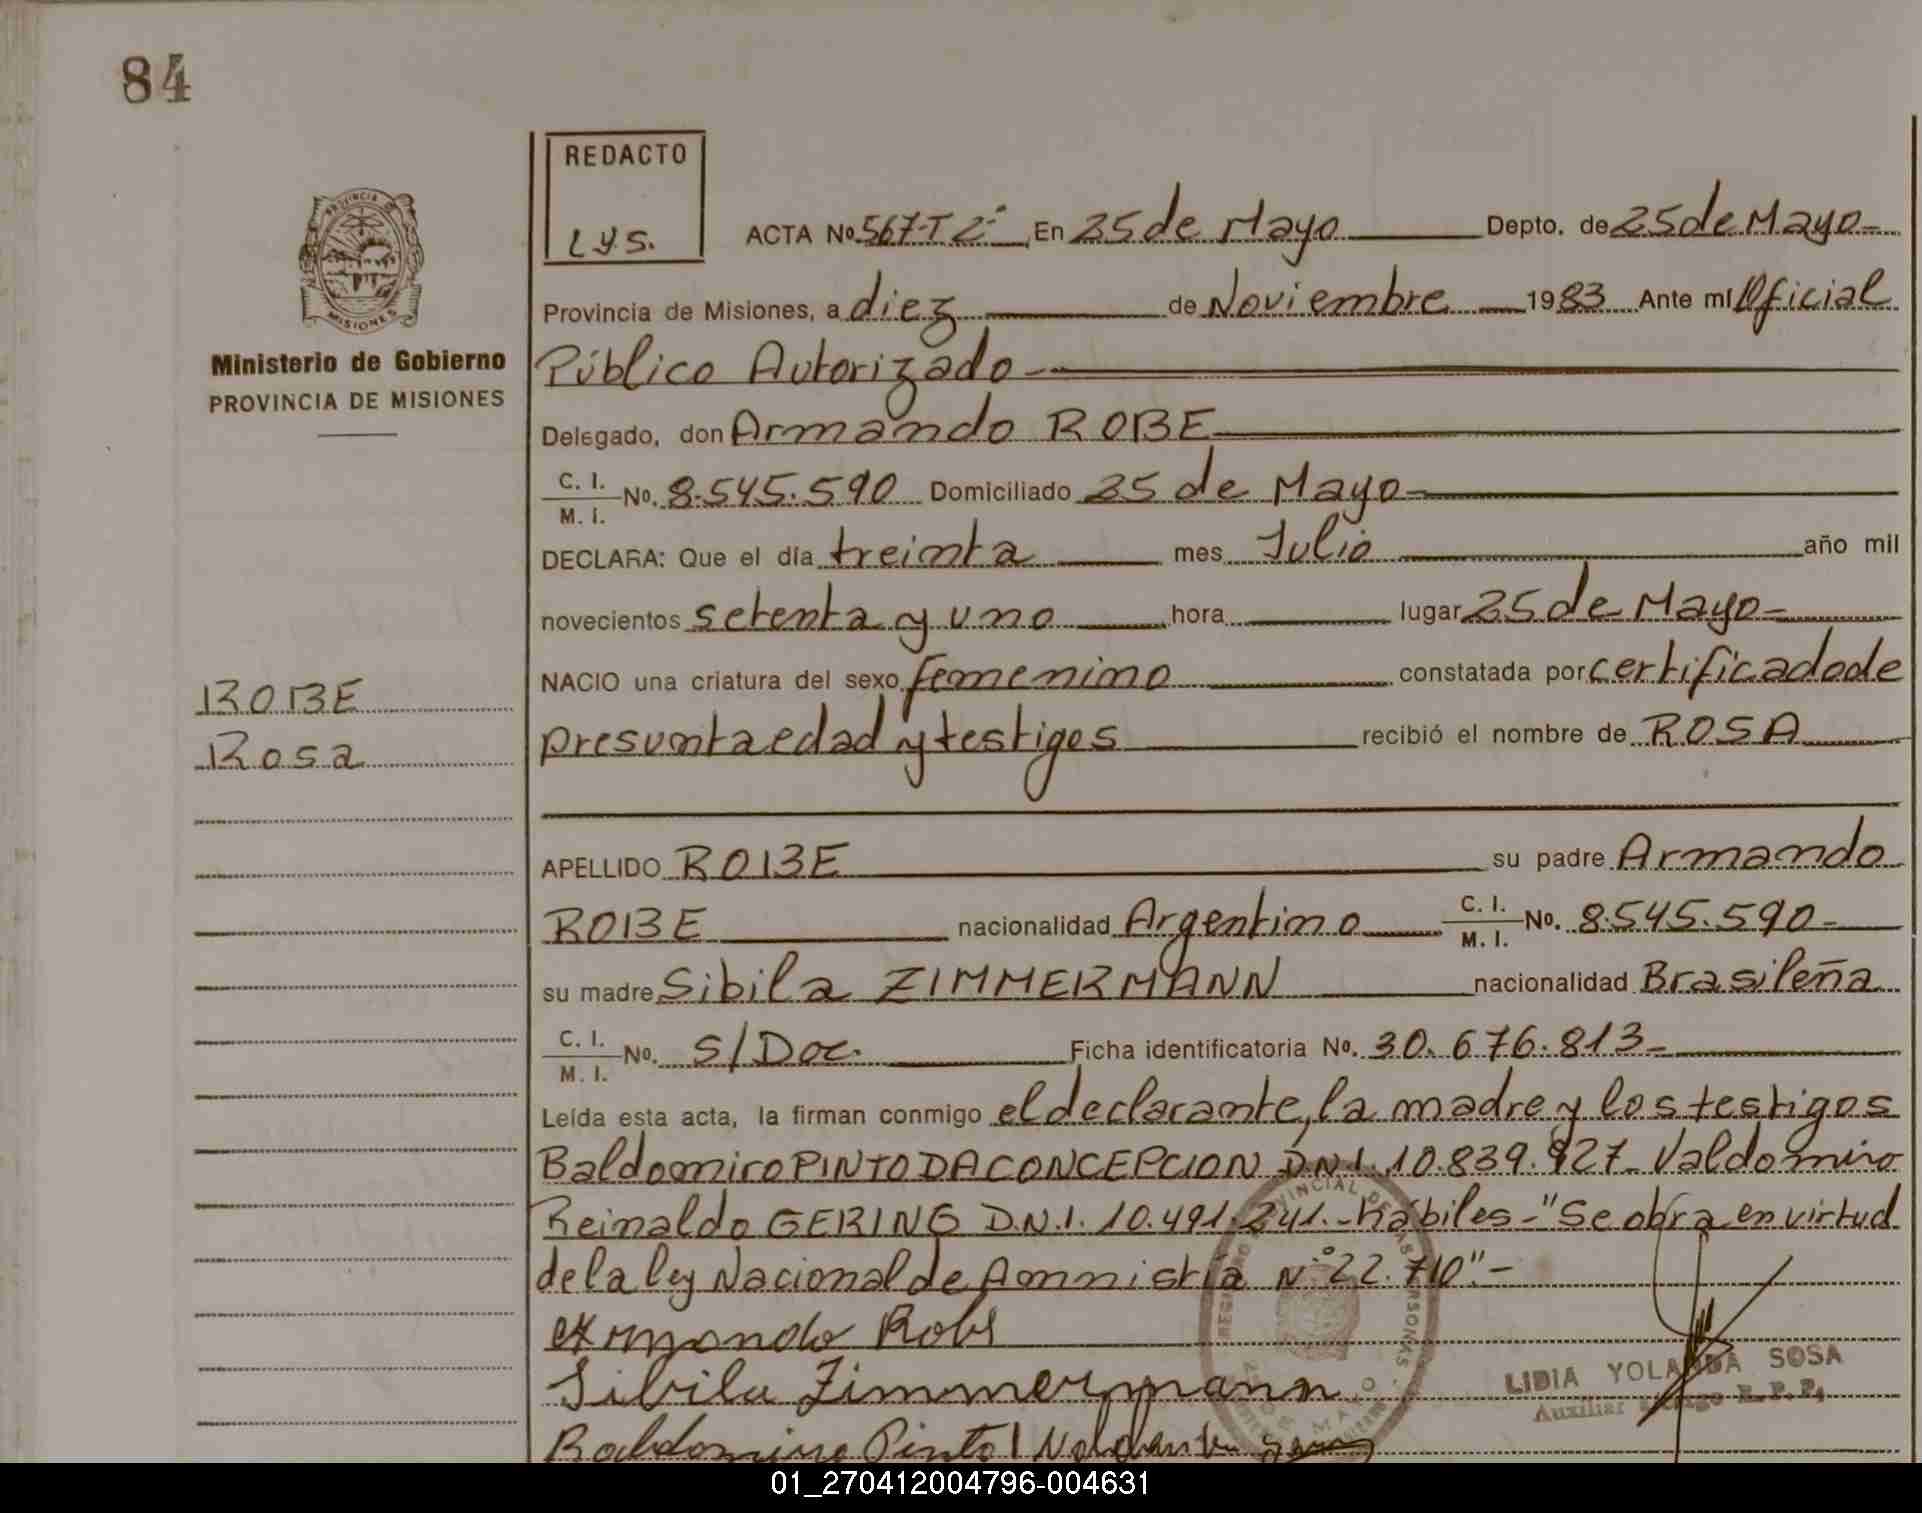 84
REDACTO
L.Y.S.
ACTA No. 567-T 2° En 25 de Mayo Depto. de 25 de Mayo
Provincia de Misiones, a diez de Noviembre 1983 Ante mí Oficial
Público Autorizado
Delegado, don Armando ROBE
C. I. / M. I. No. 8.545.590 Domiciliado 25 de Mayo
DECLARA: Que el día treinta mes Julio año mil
novecientos setenta y uno hora lugar 25 de Mayo
NACIO una criatura del sexo femenino constatada por certificado de
presunta edad y testigos recibió el nombre de ROSA
APELLIDO ROBE su padre Armando
ROBE nacionalidad Argentino C. I. / M. I. No. 8.545.590
su madre Sibila ZIMMERMANN nacionalidad Brasileña
C. I. / M. I. No. S/Doc. Ficha identificatoria No. 30.676.813
Leída esta acta, la firman conmigo el declarante, la madre y los testigos
Baldomiro PINTO DA CONCEPCION D.N.I. 10.839.927 Valdomiro
Reinaldo GERING D.N.I. 10.491.241.- Hábiles - "Se obra en virtud
de la ley Nacional de Amnistía N° 22.710".-
Armando Robe
Sibila Zimmermann
Baldomiro Pinto
PROVINCIA DE MISIONES
Ministerio de Gobierno
PROVINCIA DE MISIONES
ROBE
Rosa
LIDIA YOLANDA SOSA
Auxiliar R.P.P.
01_270412004796-004631